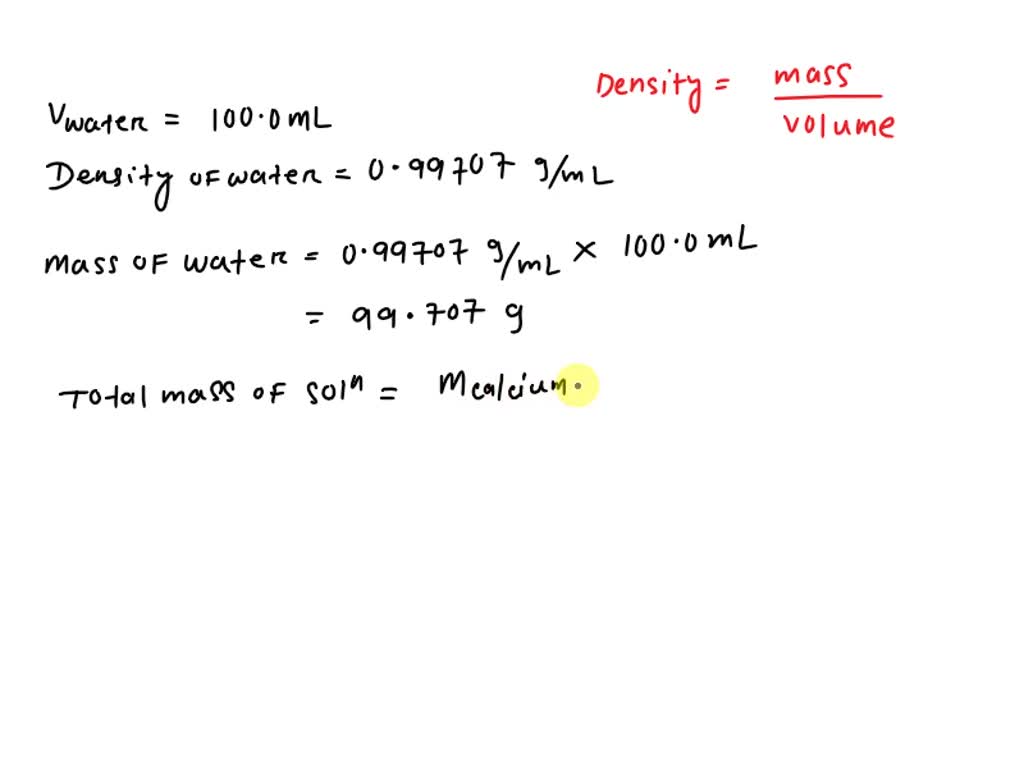 Density = mass
volume
Vwater = 100.0 mL
Density of water = 0.99707 g/mL
mass of water = 0.99707 g/mL × 100.0 mL
= 99.707 g
Total mass of solⁿ = Mcalcium.